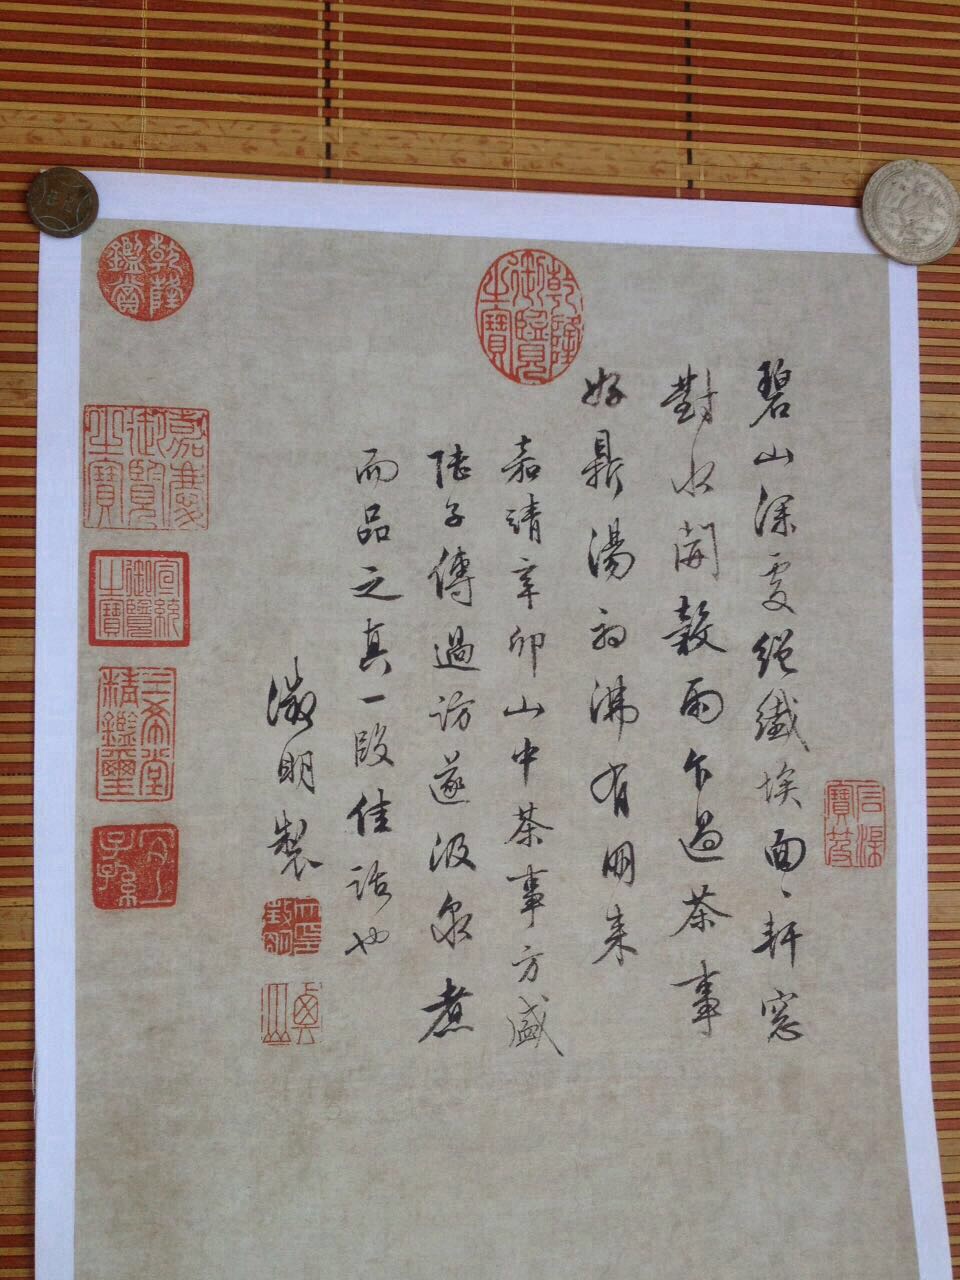 碧山深處絕纖埃面々軒窓
對水開穀雨乍過茶事
好鼎湯初沸有朋来
嘉靖辛卯山中茶事方盛
陸子傳過訪遂汲泉煮
而品之真一段佳話也
徵明製
乾隆御覽之寶
乾隆鑑賞
嘉慶御覽之寶
宣統御覽之寶
三希堂精鑑璽
宜子孫